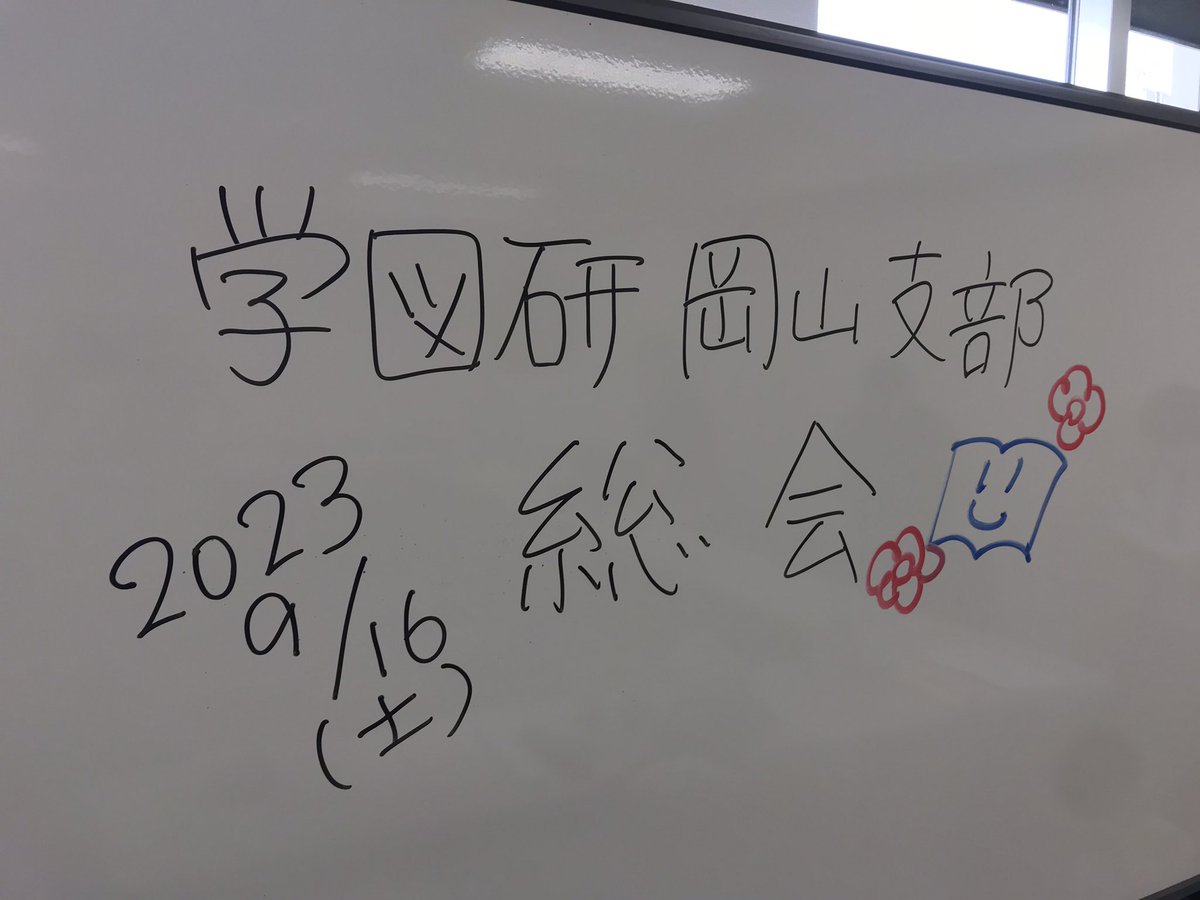 学図研 岡山支部
総会
2023
9/16
(土)